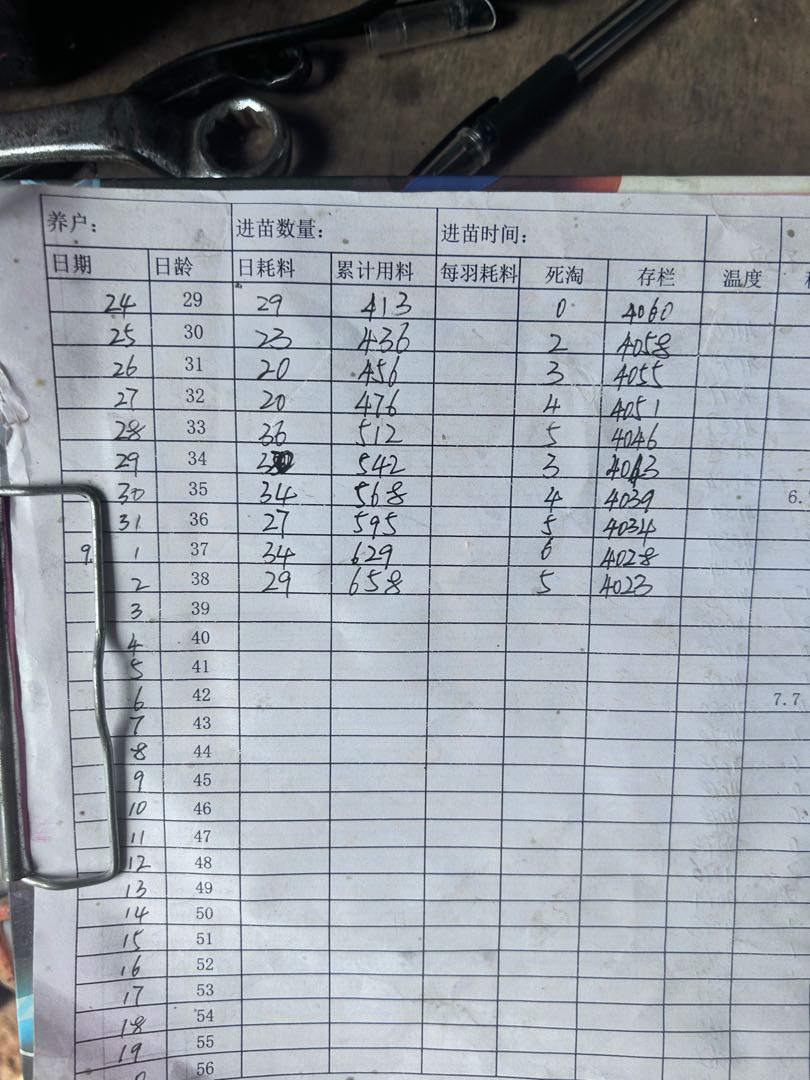 养户： 进苗数量： 进苗时间：
日期 日龄 日耗料 累计用料 每羽耗料 死淘 存栏 温度
24 29 29 413 0 4060
25 30 23 436 2 4058
26 31 20 456 3 4055
27 32 20 476 4 4051
28 33 36 512 5 4046
29 34 542 3 4043
30 35 34 568 4 4039 6.
31 36 27 595 5 4034
9. 1 37 34 629 6 4028
2 38 29 658 5 4023
3 39
4 40
5 41
6 42 7.7
7 43
8 44
9 45
10 46
11 47
12 48
13 49
14 50
15 51
16 52
17 53
18 54
19 55
56